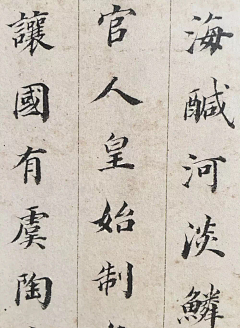 海鹹河淡鱗
官人皇始制
讓國有虞陶